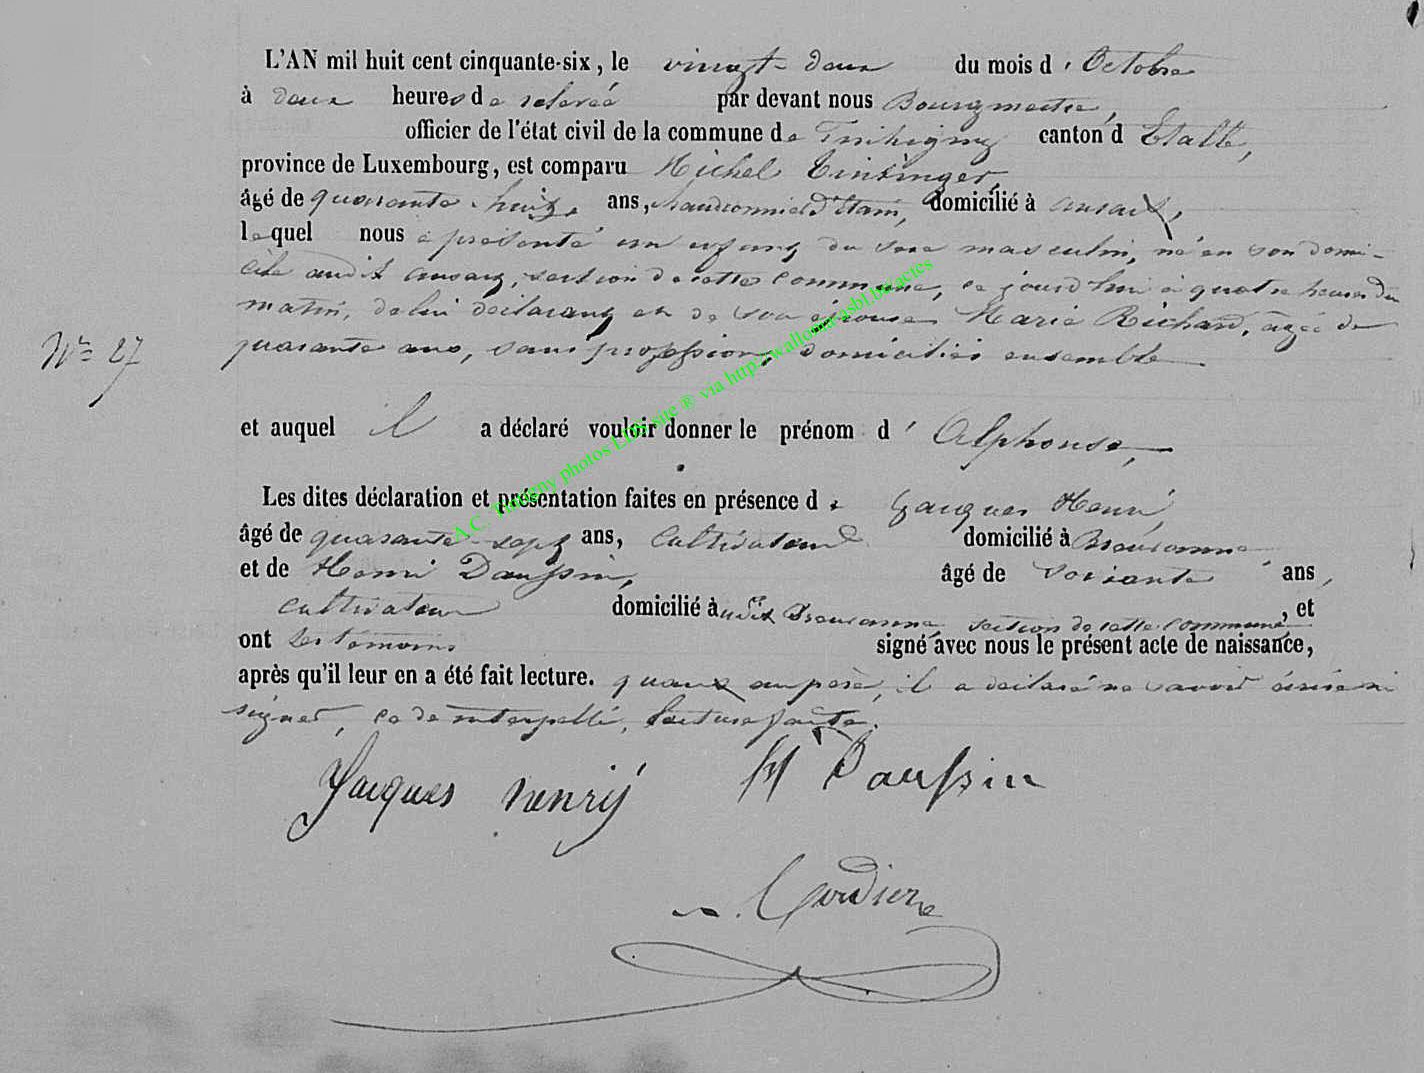 L'AN mil huit cent cinquante-six, le vingt-deux du mois d'Octobre
à deux heures de relevée par devant nous Bourgmestre,
officier de l'état civil de la commune de Tintigny canton d'Etalle,
province de Luxembourg, est comparu Michel
âgé de quarante-huit ans, chaudronnier d'étain, domicilié à ansart,
lequel nous a présenté un enfant du sexe masculin, né en son domi-
cile audit ansart, section de cette commune, ce jourd'hui à quatre heures du
matin, de lui déclarant et de son épouse Marie Richard, âgée de
Nº= 27
quarante ans, sans profession, domiciliés ensemble
et auquel il a déclaré vouloir donner le prénom d'Alphonse,
Les dites déclaration et présentation faites en présence de Jacques Henri,
âgé de quarante-sept ans, cultivateur domicilié à
et de Henri Daussin, âgé de soixante ans,
cultivateur domicilié audit section de cette commune, et
ont les témoins signé avec nous le présent acte de naissance,
après qu'il leur en a été fait lecture. quant au père, il a déclaré ne savoir écrire ni
signer, ce de interpellé, lecture faite.
Jacques henrÿ H Daussin
Cordier
A.C. Tintigny photos LDS site ® via http://wallonia-asbl.be/actes